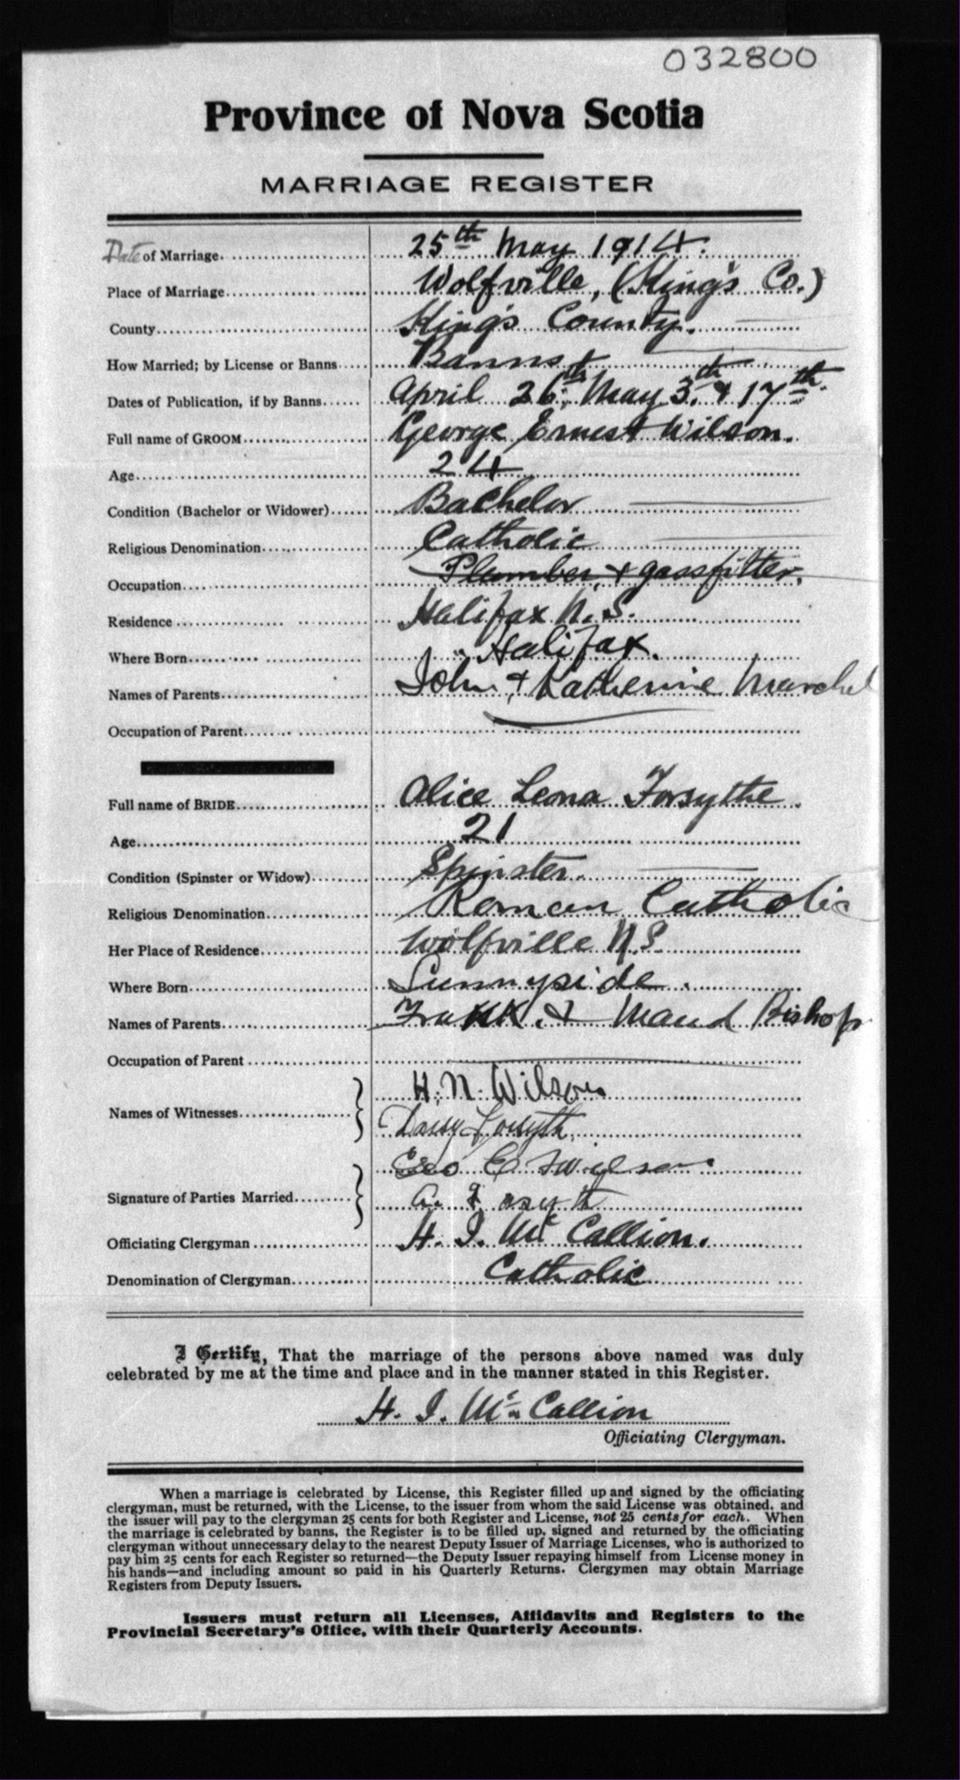 032800
Province of Nova Scotia
MARRIAGE REGISTER
Date of Marriage. 25th May 1914.
Place of Marriage Wolfville, (King's Co.)
County King's County.
How Married; by License or Banns Banns
Dates of Publication, if by Banns April 26th, May 3th & 17th.
Full name of GROOM George Ernest Wilson.
Age 24
Condition (Bachelor or Widower) Bachelor
Religious Denomination Catholic
Occupation Plumber & gassfitter.
Residence Halifax N.S.
Where Born Halifax.
Names of Parents John & Katherine
Occupation of Parent
Full name of BRIDE Alice Lena Forsythe.
Age 21
Condition (Spinster or Widow) Spinster.
Religious Denomination Roman Catholic
Her Place of Residence Wolfville N.S.
Where Born Sunnyside.
Names of Parents Frank & Maud Bishop
Occupation of Parent
Names of Witnesses H. N. Wilson
Daisy Forsyth
Signature of Parties Married Geo E Wilson
A. Forsyth
Officiating Clergyman H. I. McCallion.
Denomination of Clergyman Catholic
I Certify, That the marriage of the persons above named was duly
celebrated by me at the time and place and in the manner stated in this Register.
H. I. McCallion
Officiating Clergyman.
When a marriage is celebrated by License, this Register filled up and signed by the officiating
clergyman, must be returned, with the License, to the issuer from whom the said License was obtained, and
the issuer will pay to the clergyman 25 cents for both Register and License, not 25 cents for each. When
the marriage is celebrated by banns, the Register is to be filled up, signed and returned by the officiating
clergyman without unnecessary delay to the nearest Deputy Issuer of Marriage Licenses, who is authorized to
pay him 25 cents for each Register so returned—the Deputy Issuer repaying himself from License money in
his hands—and including amount so paid in his Quarterly Returns. Clergymen may obtain Marriage
Registers from Deputy Issuers.
Issuers must return all Licenses, Affidavits and Registers to the
Provincial Secretary's Office, with their Quarterly Accounts.